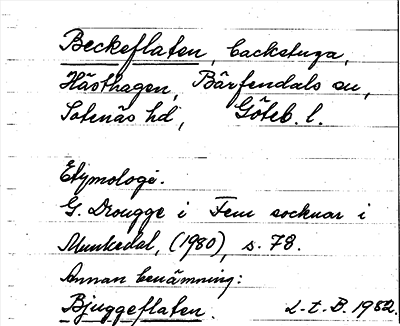 Beckeflaten, backstuga,
Hästhagen, Bärfendals sn,
Sotenäs hd, Göteb. l.
Etymologi.
G. Drougge i Fem socknar i
Munkedal, (1980), s. 78.
Annan benämning:
Bjuggeflaten. L-t. B. 1982.